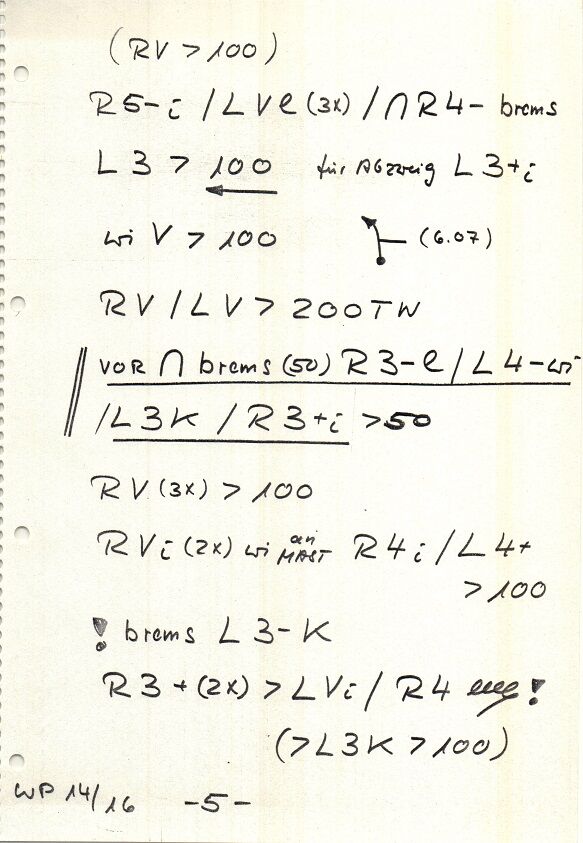 (RV > 100)
R5-i / LVl (3x) / ∩R4- brems
L3 > 100 für Abzweig L3+i
wi V > 100 (6.07)
RV / LV > 200TW
VOR ∩ brems (50) R3-l / L4-wi
/L3K / R3+i > 50
RV (3x) > 100
RVi (2x) wi an MAST R4i / L4+
> 100
! brems L3-K
R3+(2x) > LVi / R4 eng!
(> L3K > 100)
WP 14/16 -5-